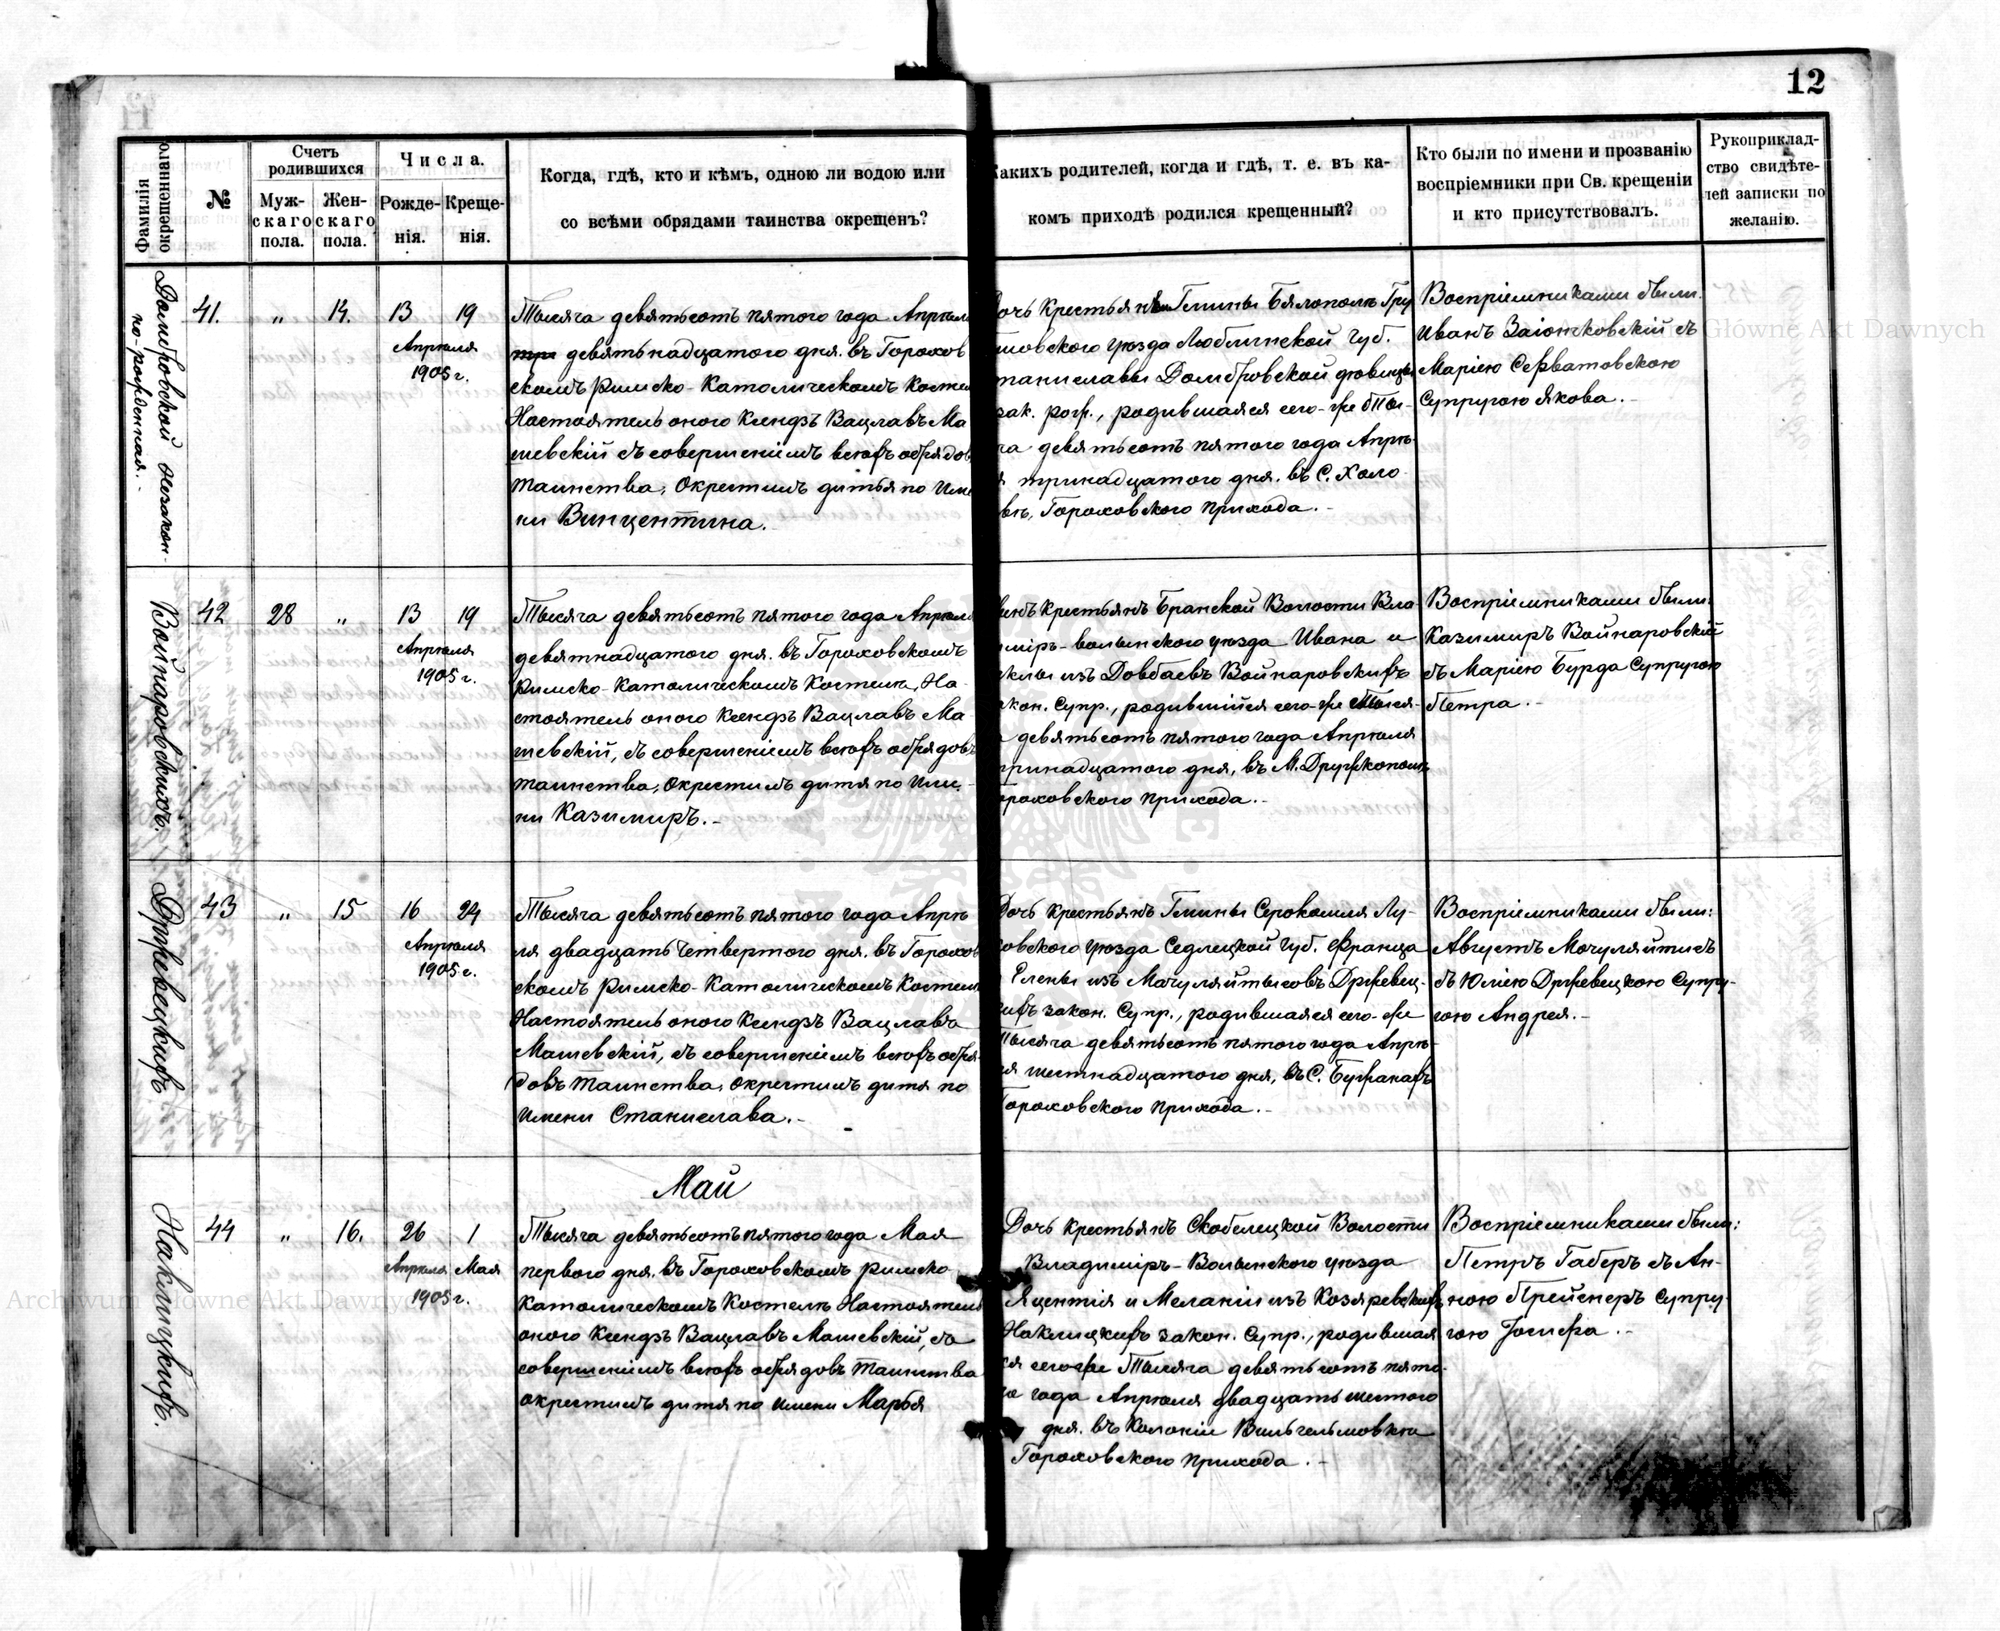 12
Фамилія
окрестоннваго
№
Счетъ
родившихся
Муж-
скаго
пола.
Жен-
скаго
пола.
Числа.
Рожде-
нія.
Креще-
нія.
Когда, гдѣ, кто и кѣмъ, одною ли водою или
со всѣми обрядами таинства окрещенъ?
Какихъ родителей, когда и гдѣ, т. е. въ ка-
комъ приходѣ родился крещенный?
Кто были по имени и прозванію
воспріемники при Св. крещеніи
и кто присутствовалъ.
Рукоприклад-
ство свидѣте-
лей записки по
желанію.
Домбровской незакон-
но-рожденная.-
41.
„
14.
13
19
Апрѣля
1905 г.
Тысяча девятьсотъ пятого года Апрѣля
девятьнадцатого дня. въ Горохов
скомъ Римско-Католическомъ Костел
Настоятель оного Ксендзъ Вацлавъ Ма
шевскій съ совершеніемъ всѣхъ обрядов
таинства, окрестилъ дитя по име
ни Винцентина.
очь крестьянки Гмины Бялополь Гру
шовского уѣзда Люблинской Губ.
таниславы Домбровской дѣвицы
зак. рож., родившаяся сего-же Тыс-
ча девятьсотъ пятого года Апрѣ-
я тринадцатого дня. въ С. Холо-
вѣ, Гороховского прихода.-
Воспріемниками были:
Иванъ Заіончковскій съ
Маріею Серватовскою
Супругою Якова.-
Войнаровскихъ.
42
28
„
13
19
Апрѣля
1905 г.
Тысяча девятьсотъ пятого года Апрѣля
девятнадцатого дня. въ Гороховскомъ
Римско-Католическомъ Костелѣ, На-
стоятель оного Ксендзъ Вацлавъ Ма-
шевскій, съ совершеніемъ всѣхъ обрядовъ
таинства, окрестилъ дитя по име-
ни Казимиръ.-
ынъ крестьянъ Бранской Волости Вла-
иміръ-волынского уѣзда Ивана и
еклы изъ Довбаевъ Войнаровскихъ
кон. Супр., родившійся сего-же Тыся-
девятьсотъ пятого года Апрѣля
тринадцатого дня, въ М. Дружкополѣ
ороховского прихода.-
Воспріемниками были:
Казимиръ Войнаровскій
съ Маріею Бурда Супругою
Петра.-
Држевецкихъ
43
„
15
16
24
Апрѣля
1905 г.
Тысяча девятьсотъ пятого года Апрѣ
ля двадцать четвертого дня. въ Горохов
скомъ Римско-Католическомъ Костел
Настоятель оного Ксендзъ Вацлавъ
Машевскій, съ совершеніемъ всѣхъ обря-
довъ таинства, окрестилъ дитя по
имени Станислава.-
Дочь крестьянъ Гмины Серокомля Лу-
ковского уѣзда Седлецкой Губ. Франца
Елены изъ Мачуляйтысовъ Држевец-
ихъ закон. Супр., родившаяся сего-же
Тысяча девятьсотъ пятого года Апрѣ-
ля шестнадцатого дня, въ С. Бужанахъ
Гороховского прихода.-
Воспріемниками были:
Августъ Мачуляйтисъ
съ Юліею Држевецкою Супру-
гою Андрея.-
Май
Наклицкихъ.
44
„
16.
26
1
Апрѣля
Мая
1905 г.
Тысяча девятьсотъ пятого года Мая
первого дня. въ Гороховскомъ Римско
Католическомъ Костелѣ Настоятель
оного Ксендзъ Вацлавъ Машевскій, съ
совершеніемъ всѣхъ обрядовъ таинства
окрестилъ дитя по имени Марья
Дочь крестьянъ Скобелецкой Волости
Владиміръ-Волынского уѣзда
Яцентія и Меланіи изъ Козяревскихъ
Наклицкихъ закон. Супр., родившая
ся сегоже Тысяча девятьсотъ пято-
го года Апрѣля двадцать шестого
дня. въ Колоніи Вильгельмовка
Гороховского прихода.-
Воспріемниками были:
Петръ Габеръ съ Ан-
ною Прейснеръ Супру-
гою Іосифа.-
Archiwum Główne Akt Dawnych
Główne Akt Dawnych